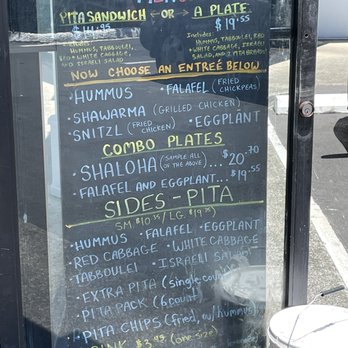 PITA SANDWICH ← OR → A PLATE
$14.95 $19.55
Includes: Includes:
HUMMUS, TABBOULEI, HUMMUS, TABBOULEI, RED
RED + WHITE CABBAGE, + WHITE CABBAGE, ISRAELI
AND ISRAELI SALAD SALAD, AND 2 PITA BREADS
NOW CHOOSE AN ENTREÉ BELOW
• HUMMUS • FALAFEL (FRIED CHICKPEAS)
• SHAWARMA (GRILLED CHICKEN)
• SNITZL (FRIED CHICKEN) • EGGPLANT
COMBO PLATES
• SHALOHA (SAMPLE ALL OF THE ABOVE)... $20.70
• FALAFEL AND EGGPLANT... $19.55
SIDES - PITA
SM $10.35 / LG.
• HUMMUS • FALAFEL • EGGPLANT
• RED CABBAGE • WHITE CABBAGE
• TABBOULEI • ISRAELI SALAD
• EXTRA PITA (single
• PITA PACK (6 count)
• PITA CHIPS (fried, w/hummus)
$3.45 (one-size)